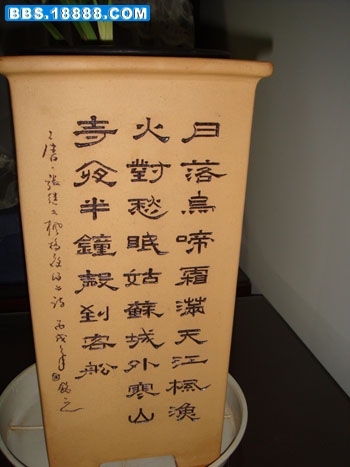 BBS.18888.COM
月落烏啼霜滿天江楓漁
火對愁眠姑蘇城外寒山
寺夜半鐘聲到客船
唐·張繼之楓橋夜泊之詩 丙戌年